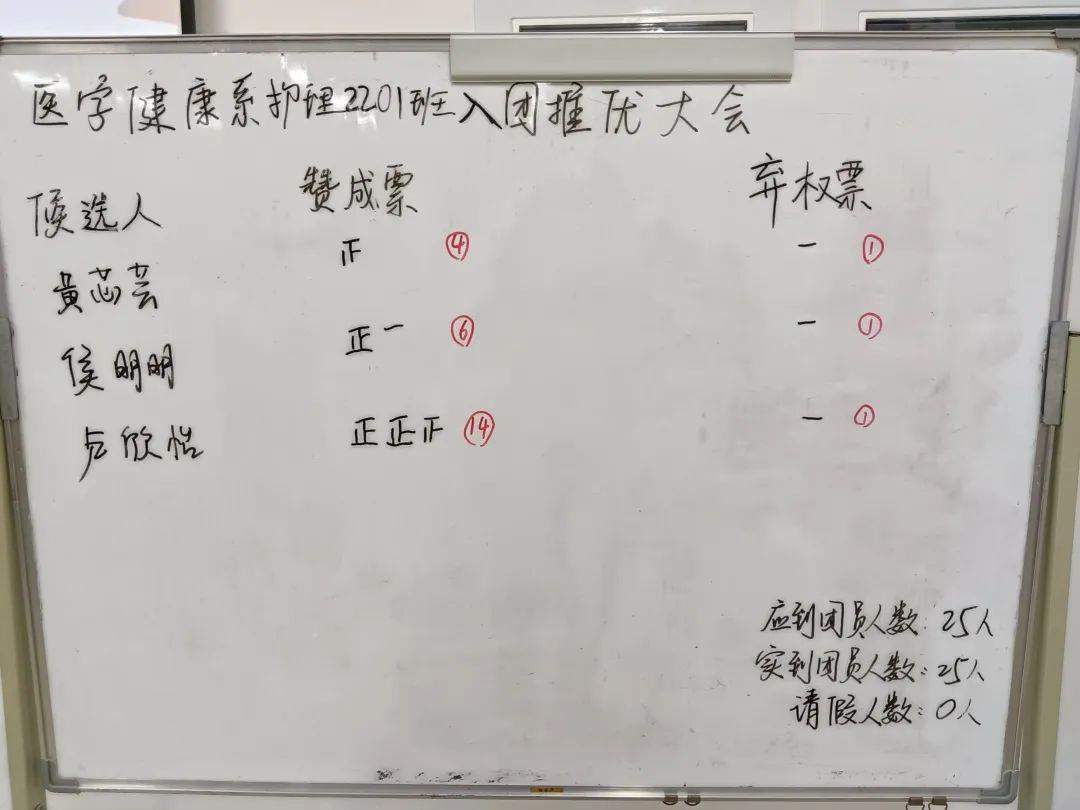 医学健康系护理2201班入团推优大会
候选人 赞成票 弃权票
黄芯芸 正 ④ 一 ①
侯明明 正一 ⑥ 一 ①
卢欣怡 正正正 ⑭ 一 ①
应到团员人数：25人
实到团员人数：25人
请假人数：0人